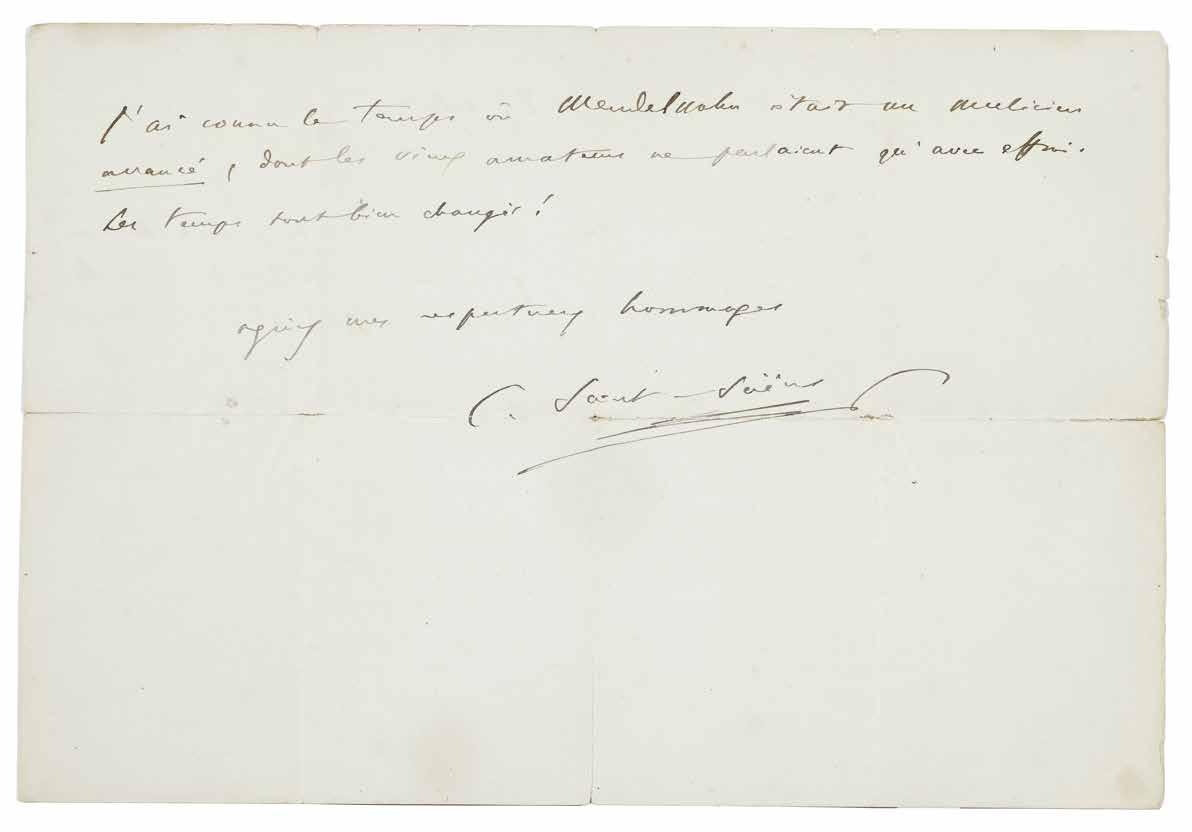 J'ai connu le temps où Mendelssohn était un musicien
avancé, dont les vieux amateurs ne parlaient qu'avec effroi.
Les temps sont bien changés !
agréez mes respectueux hommages
C. Saint-Saëns